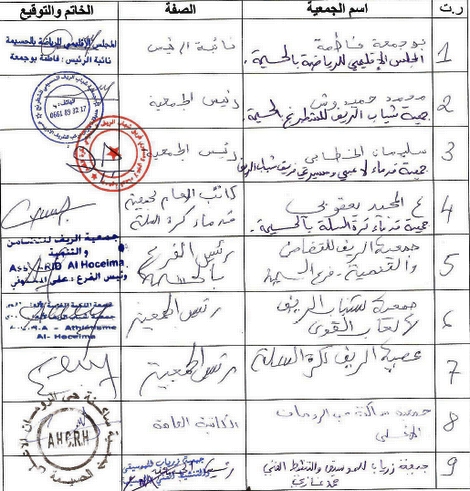 ر.ت اسم الجمعية الصفة الخاتم والتوقيع
1 بوجمعة فاطمة نائبة الرئيس
المجلس الإقليمي للرياضة بالحسيمة.
المجلس الإقليمي للرياضة بالحسيمة
نائبة الرئيس : فاطمة بوجمعة
2 محمد حميدوش رئيس الجمعية
جمعية شباب الريف للشطرنج الحسيمة
0661 89 32 17
3 سليمان رئيس الجمعية
جمعية قدماء لاعبي ومسيري فريق شباب الريف
4 ع. المجيد يعقوبي كاتب العام لجمعية
جمعية قدماء كرة السلة بالحسيمة. قدماء كرة السلة
5 جمعية الريف للتضامن رئيس الفرع
والتنمية - فرع الحسيمة بالحسيمة
جمعية الريف للتضامن
والتنمية
Al Hoceima
رئيس الفرع : علي
6 جمعية شباب الريف رئيس الجمعية
لألعاب القوى
Athlétisme
Al- Hoceima
7 عصبة الريف لكرة السلة رئيس الجمعية
8 جمعية الكاتبة العامة
A H C R H
9 جمعية زرياب للموسيقى والتنشيط الفني رئيس
جمعية زرياب للموسيقى